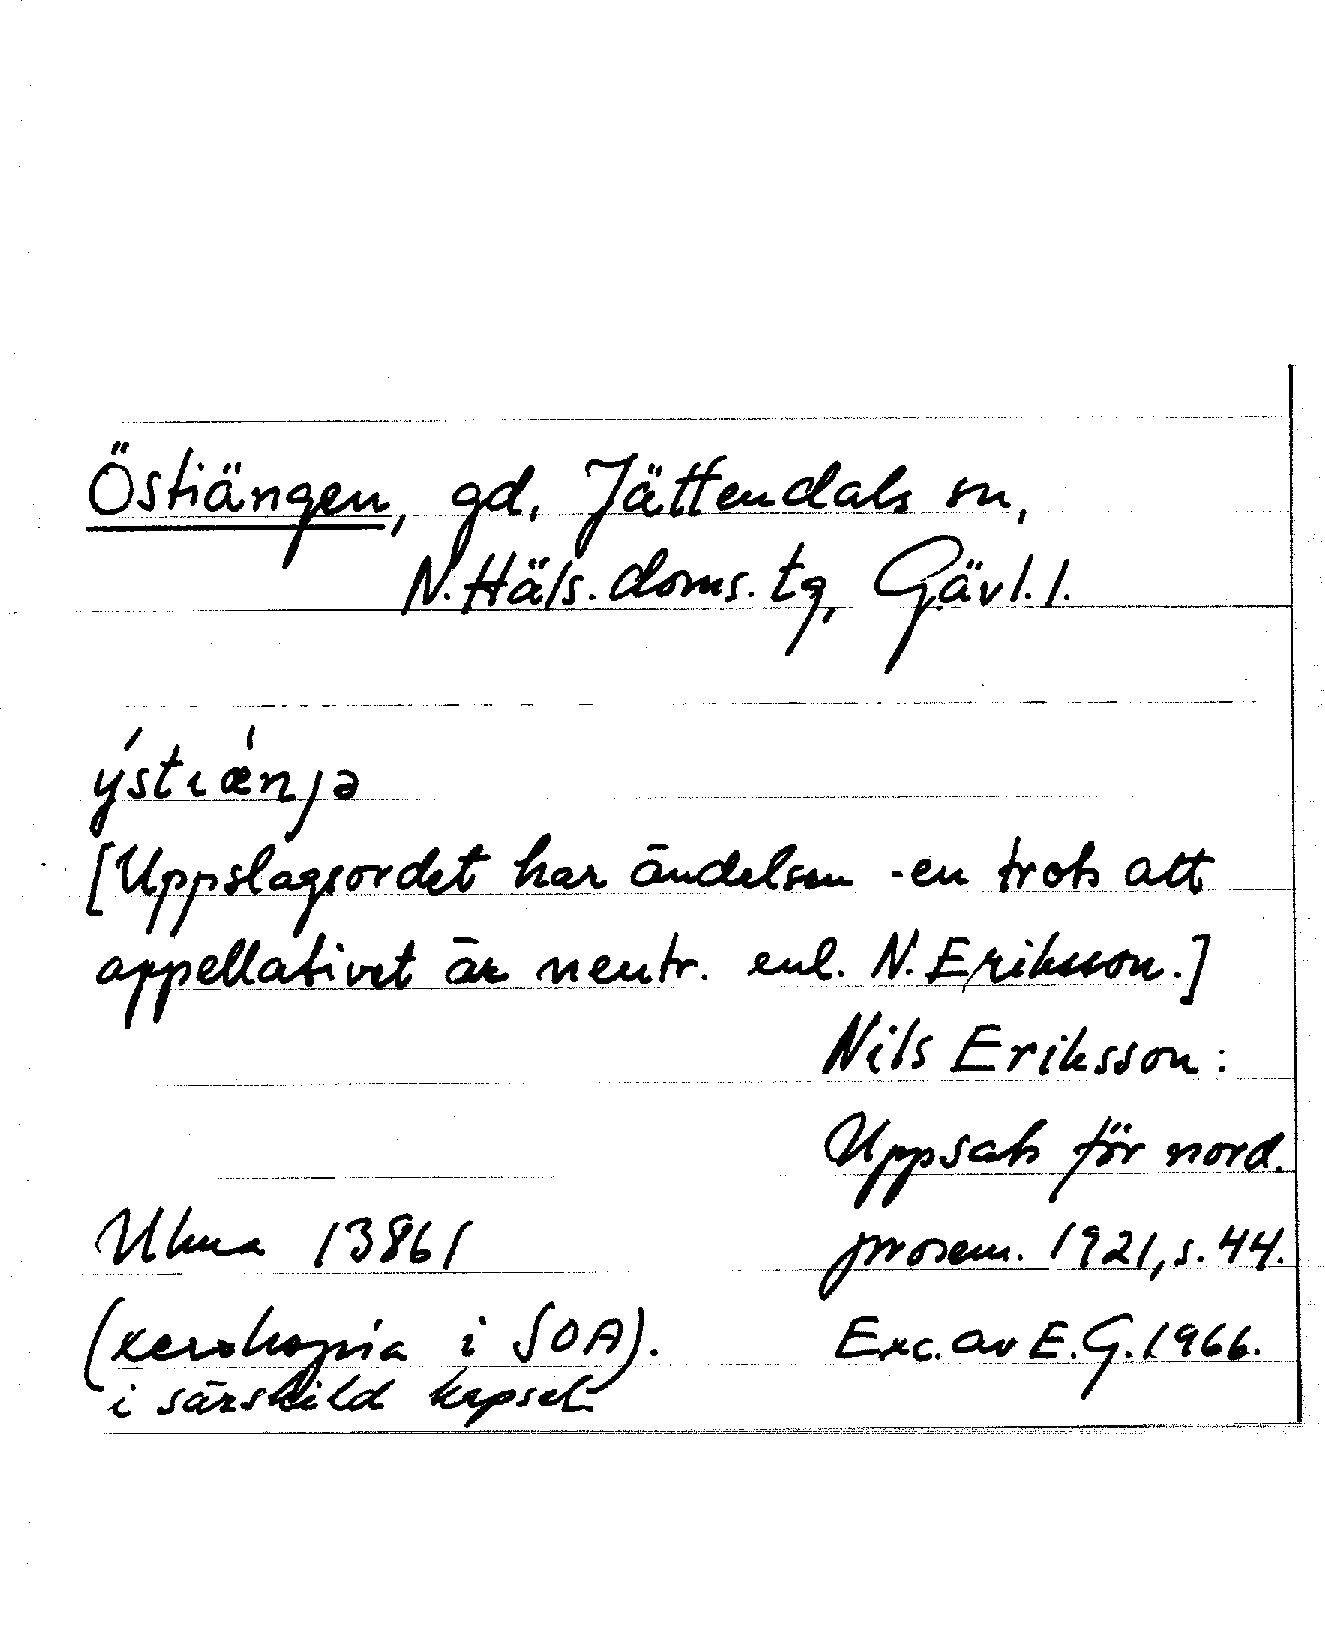 Östiängen, gd, Jättendals sn,
N. Häls. doms. tg, Gävl. l.
ýstıǽnȷə
[Uppslagsordet har ändelsen -en trots att
appellativet är neutr. enl. N. Eriksson.]
Nils Eriksson:
Uppsats för nord.
prosem. 1921, s. 44.
Exc. av E. G. 1966.
Ulma 13861
(xeroxkopia i SOA).
i särskild kapsel